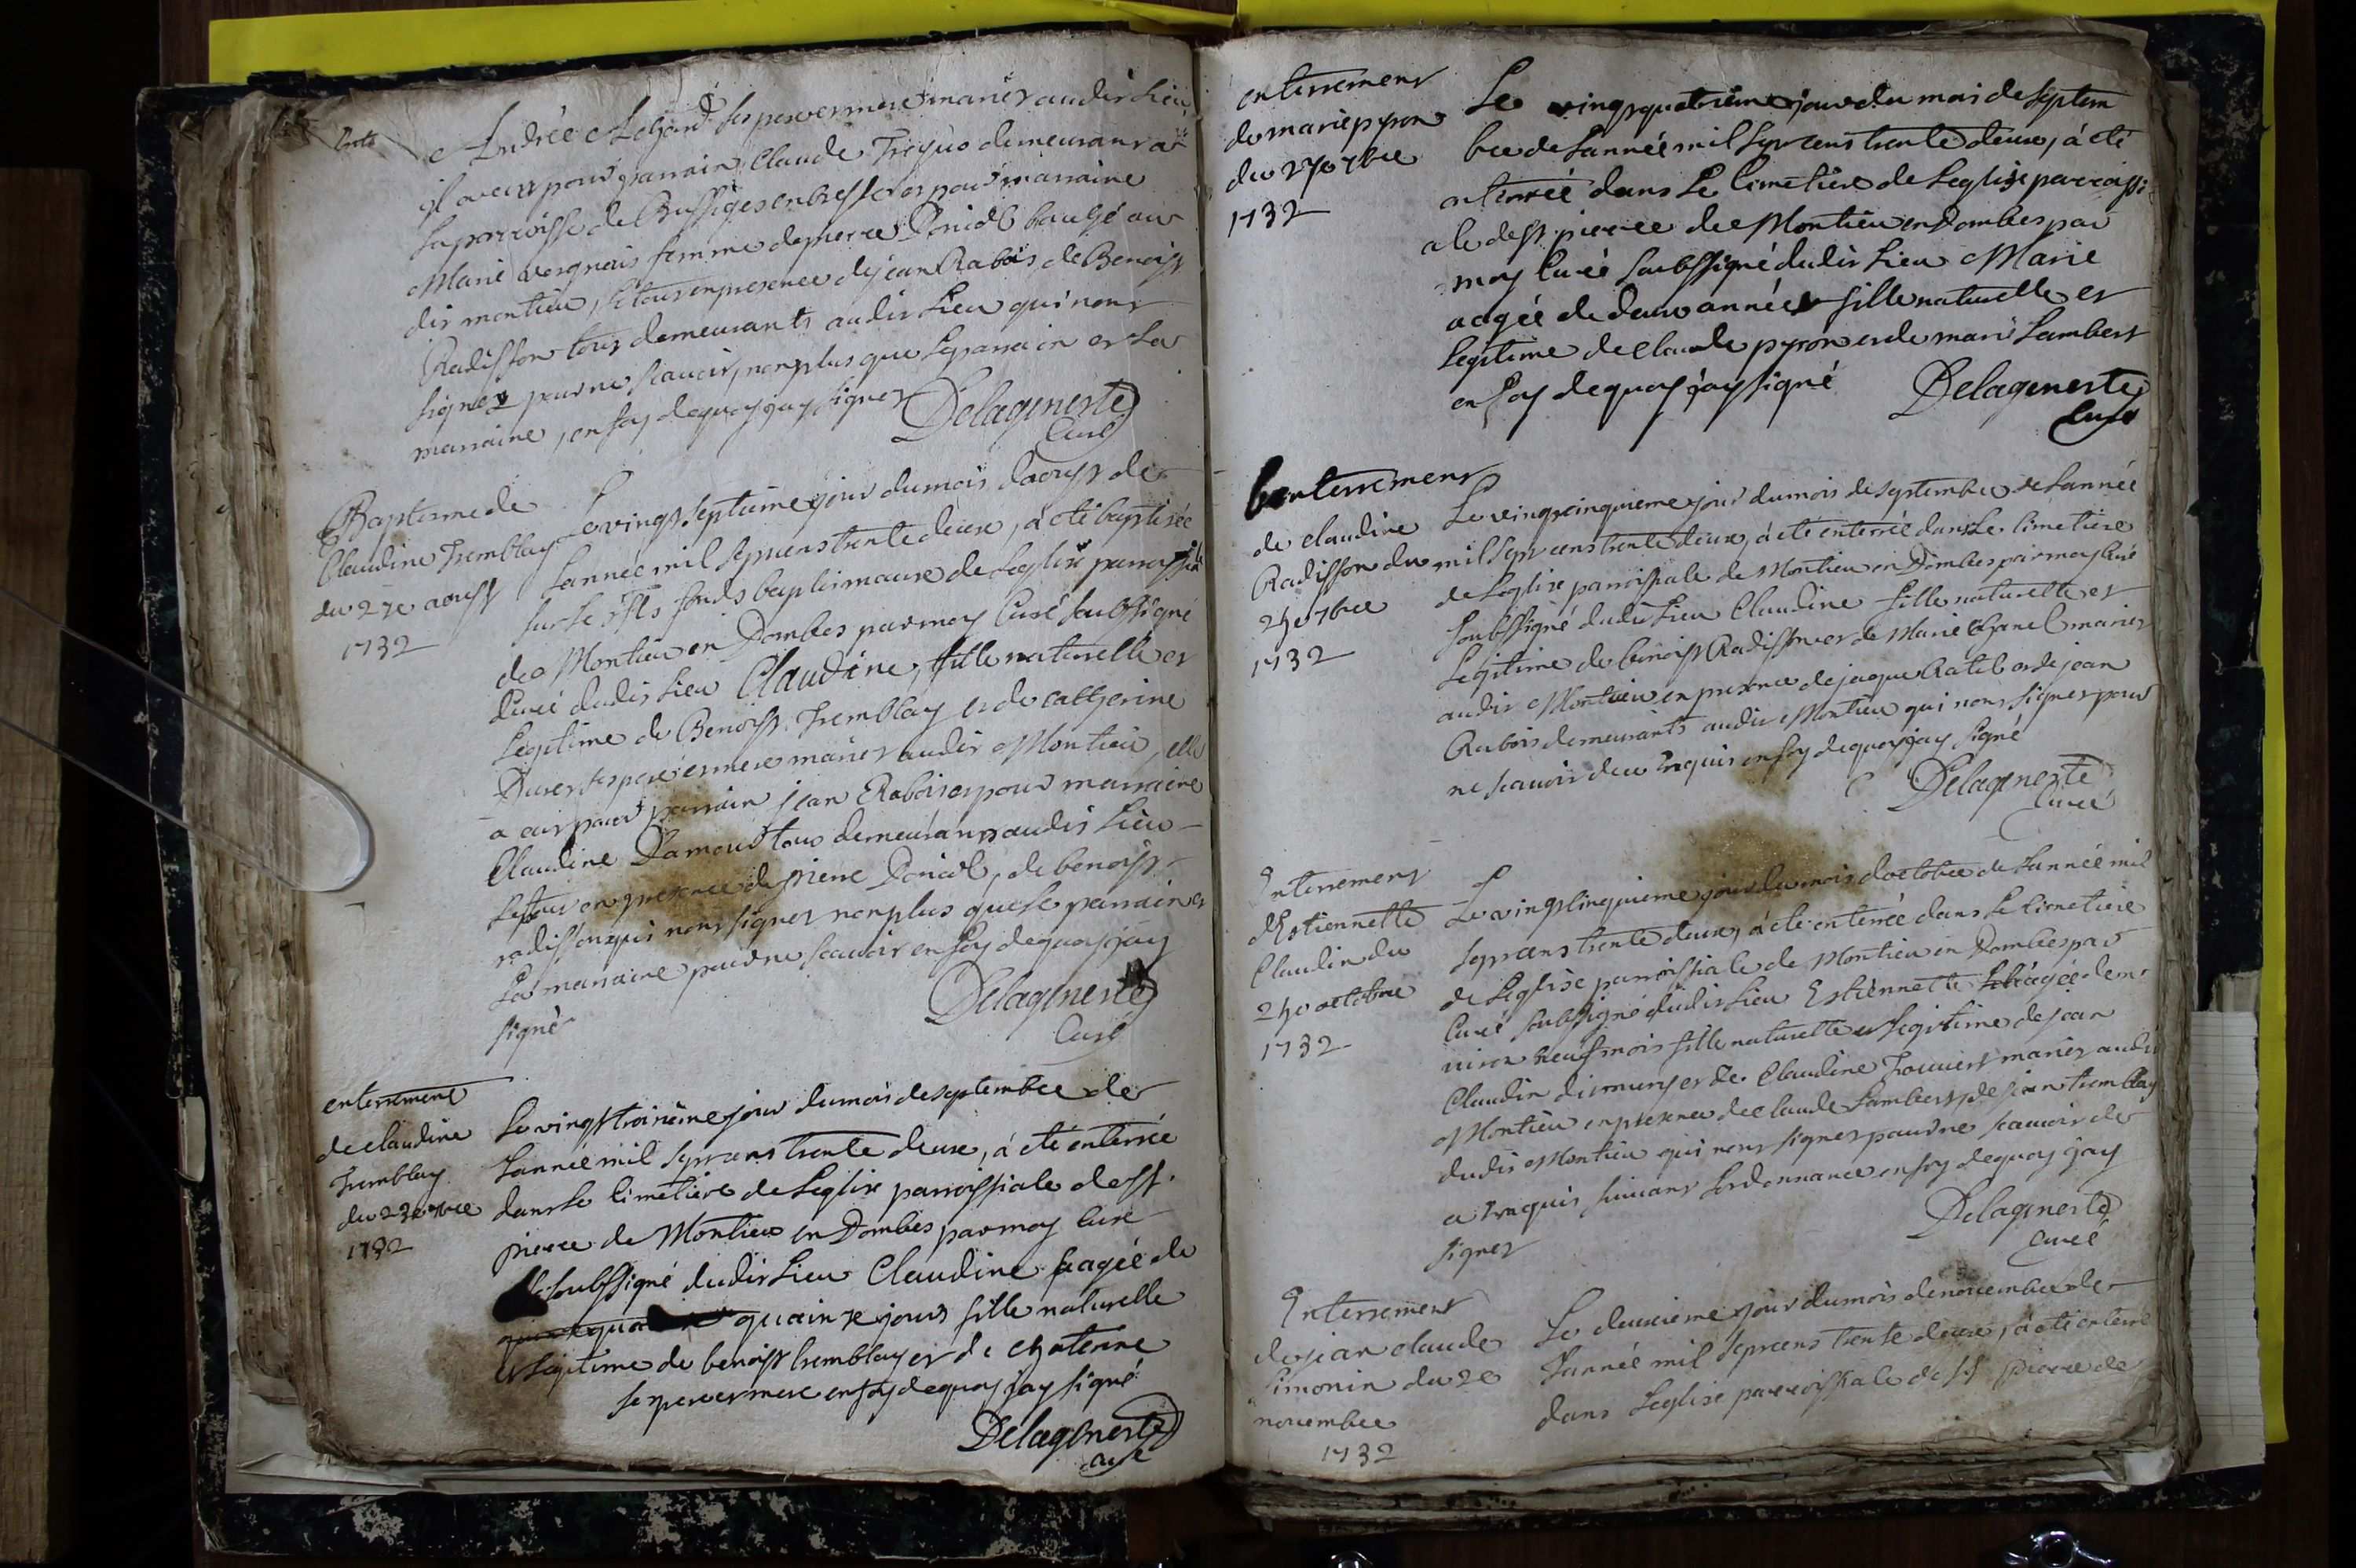 Andrée ses pere et mere mariés audit Lieu
il a eu pour parrain Claude demeurant a
la parroisse de en bresse et pour marraine
Marie femme de pierre Doniol au
dit montieu, le tout en presence de jean Rabois de Benoist
Radisson tous demeurants audit Lieu qui n'ont
signez pour ne scavoir, non plus que Le parrain et La
marraine, en foy de quoy jay signer Delagenerste
Curé
Baptesme de
Claudine Tremblay
du 27e aoust
1732
Le vingt septieme jour du mois daoust de
Lannée mil sept cens trente deux, a été baptisée
sur le fts fonds baptismaux de Leglise parroissiale
de Montieu en Dombes par moy Curé soubssigné
Curé dudit Lieu Claudine, fille naturelle et
Legitime de Benoist Tremblay et de catherine
ses pere et mere mariés audit Montieu, elle
a eut pour parrain jean Rabois et pour marraine
Claudine Damour tous demeurants audit Lieu
Le tout en presence de pierre Doniol, de benoist
radisson qui n'ont signer non plus que Le parrain et
La marraine pour ne scavoir en foy de quoy jay
signé
Delagenerste
Curé
enterrement
de claudine
Tremblay
du 23e 7bre
1732
Le vingt troisieme jour du mois de septembre de
Lannée mil sept cens trente deux, a été enterrée
dans Le Cimetiere de Leglise parroissiale de st.
pierre de Montieu en Dombes par moy Curé
soubssigné dudit Lieu Claudine aagée de
quainze jours fille naturelle
et Legitime de benoist tremblay et de
se pere et mere en foy de quoy jay signé
Delagenerste
Curé
enterrement
de marie pyron
du 24e 7bre
1732
Le vingt quatrieme jour du mois de Septem
bre de Lannée mil sept cens trente deux, a été
enterrée dans Le Cimetiere de Leglise parroissi
ale de st. pierre de Montieu en Dombes par
moy Curé soubssigné dudit Lieu Marie
aagée de deux années fille naturelle et
Legitime de Claude pyron et de marie Lambert
en foy de quoy jay signé
Delagenerste
Curé
enterrement
de claudine
Radisson du
25e 7bre
1732
Le vingt cinquieme jour du mois de septembre de Lannée
mil sept cens trente deux, a été enterrée dans Le Cimetiere
de Leglise parroissiale de Montieu en Dombes par moy Curé
soubssigné dudit Lieu Claudine fille naturelle et
Legitime de benoist Radisson et de Marie mariés
audit Montieu en presence de jaque et de jean
Rabois demeurants audit Montieu qui n'ont signer pour
ne scavoir de ce Requis en foy de quoy jay signé
Delagenerste
Curé
Enterrement
d'Estiennette
Claudin du
25e octobre
1732
Le vingt cinquieme jour du mois doctobre de Lannée mil
sept cens trente deux, a été enterrée dans Le Cimetiere
de Leglise parroissiale de Montieu en Dombes par
Curé soubssigné dudit Lieu Estiennette agée den
viron neuf mois fille naturelle et Legitime de jean
Claudin et de Claudine mariés audit
Montieu en presence de Claude Lambert, de jean tremblay
dudit Montieu qui n'ont signer pour ne scavoir de
ce Requis suivant Lordonnance en foy de quoy jay
signer
Delagenerste
Curé
Enterrement
de jean claude
Simonin du 2e
novembre
1732
Le deuxieme jour du mois de novembre de
Lannée mil sept cens trente deux, a été enterré
dans Leglise parroissiale de st Pierre de